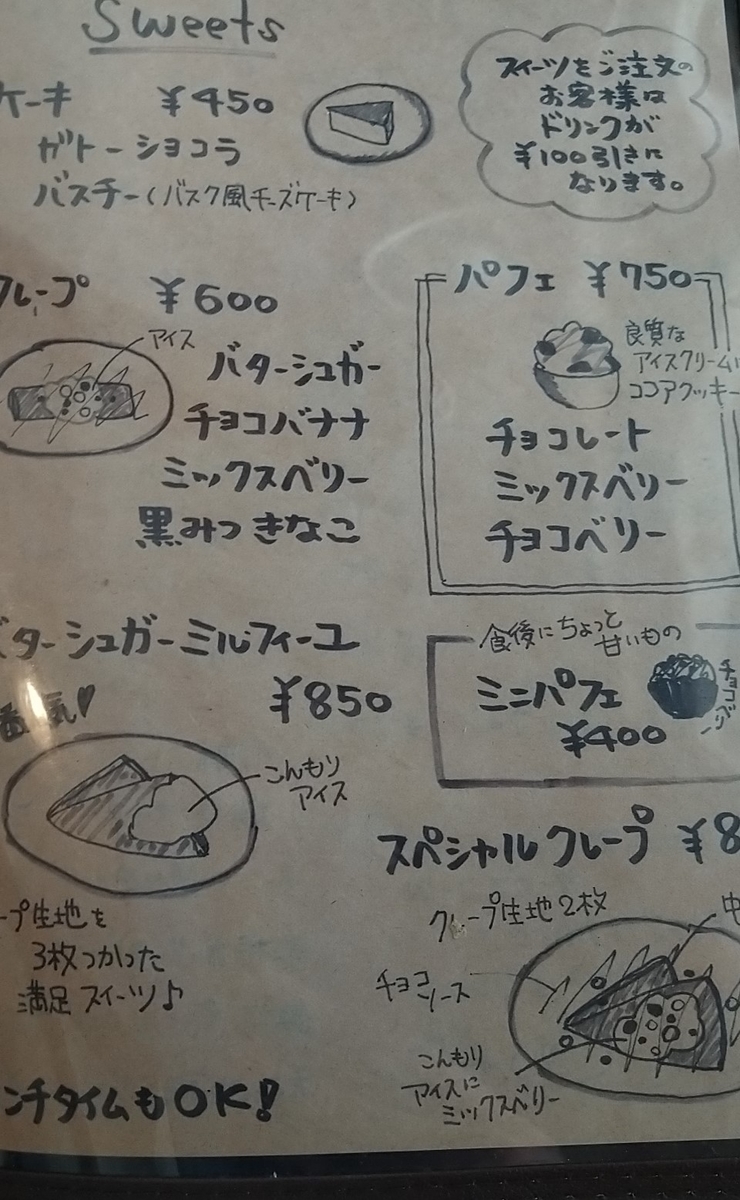 Sweets
ケーキ ¥450
ガトーショコラ
バスチー(バスク風チーズケーキ)
スイーツをご注文の
お客様は
ドリンクが
¥100引きに
なります。
クレープ ¥600
アイス
バターシュガー
チョコバナナ
ミックスベリー
黒みつきなこ
パフェ ¥750
良質な
アイスクリーム
ココアクッキー
チョコレート
ミックスベリー
チョコベリー
バターシュガーミルフィーユ
¥850
こんもり
アイス
ープ生地を
3枚つかった
満足スイーツ♪
ンチタイムもOK!
食後にちょっと
甘いもの
ミニパフェ
¥400
チョコベリー
スペシャルクレープ ¥8
クレープ生地2枚
中
チョコ
ソース
こんもり
アイスに
ミックスベリー